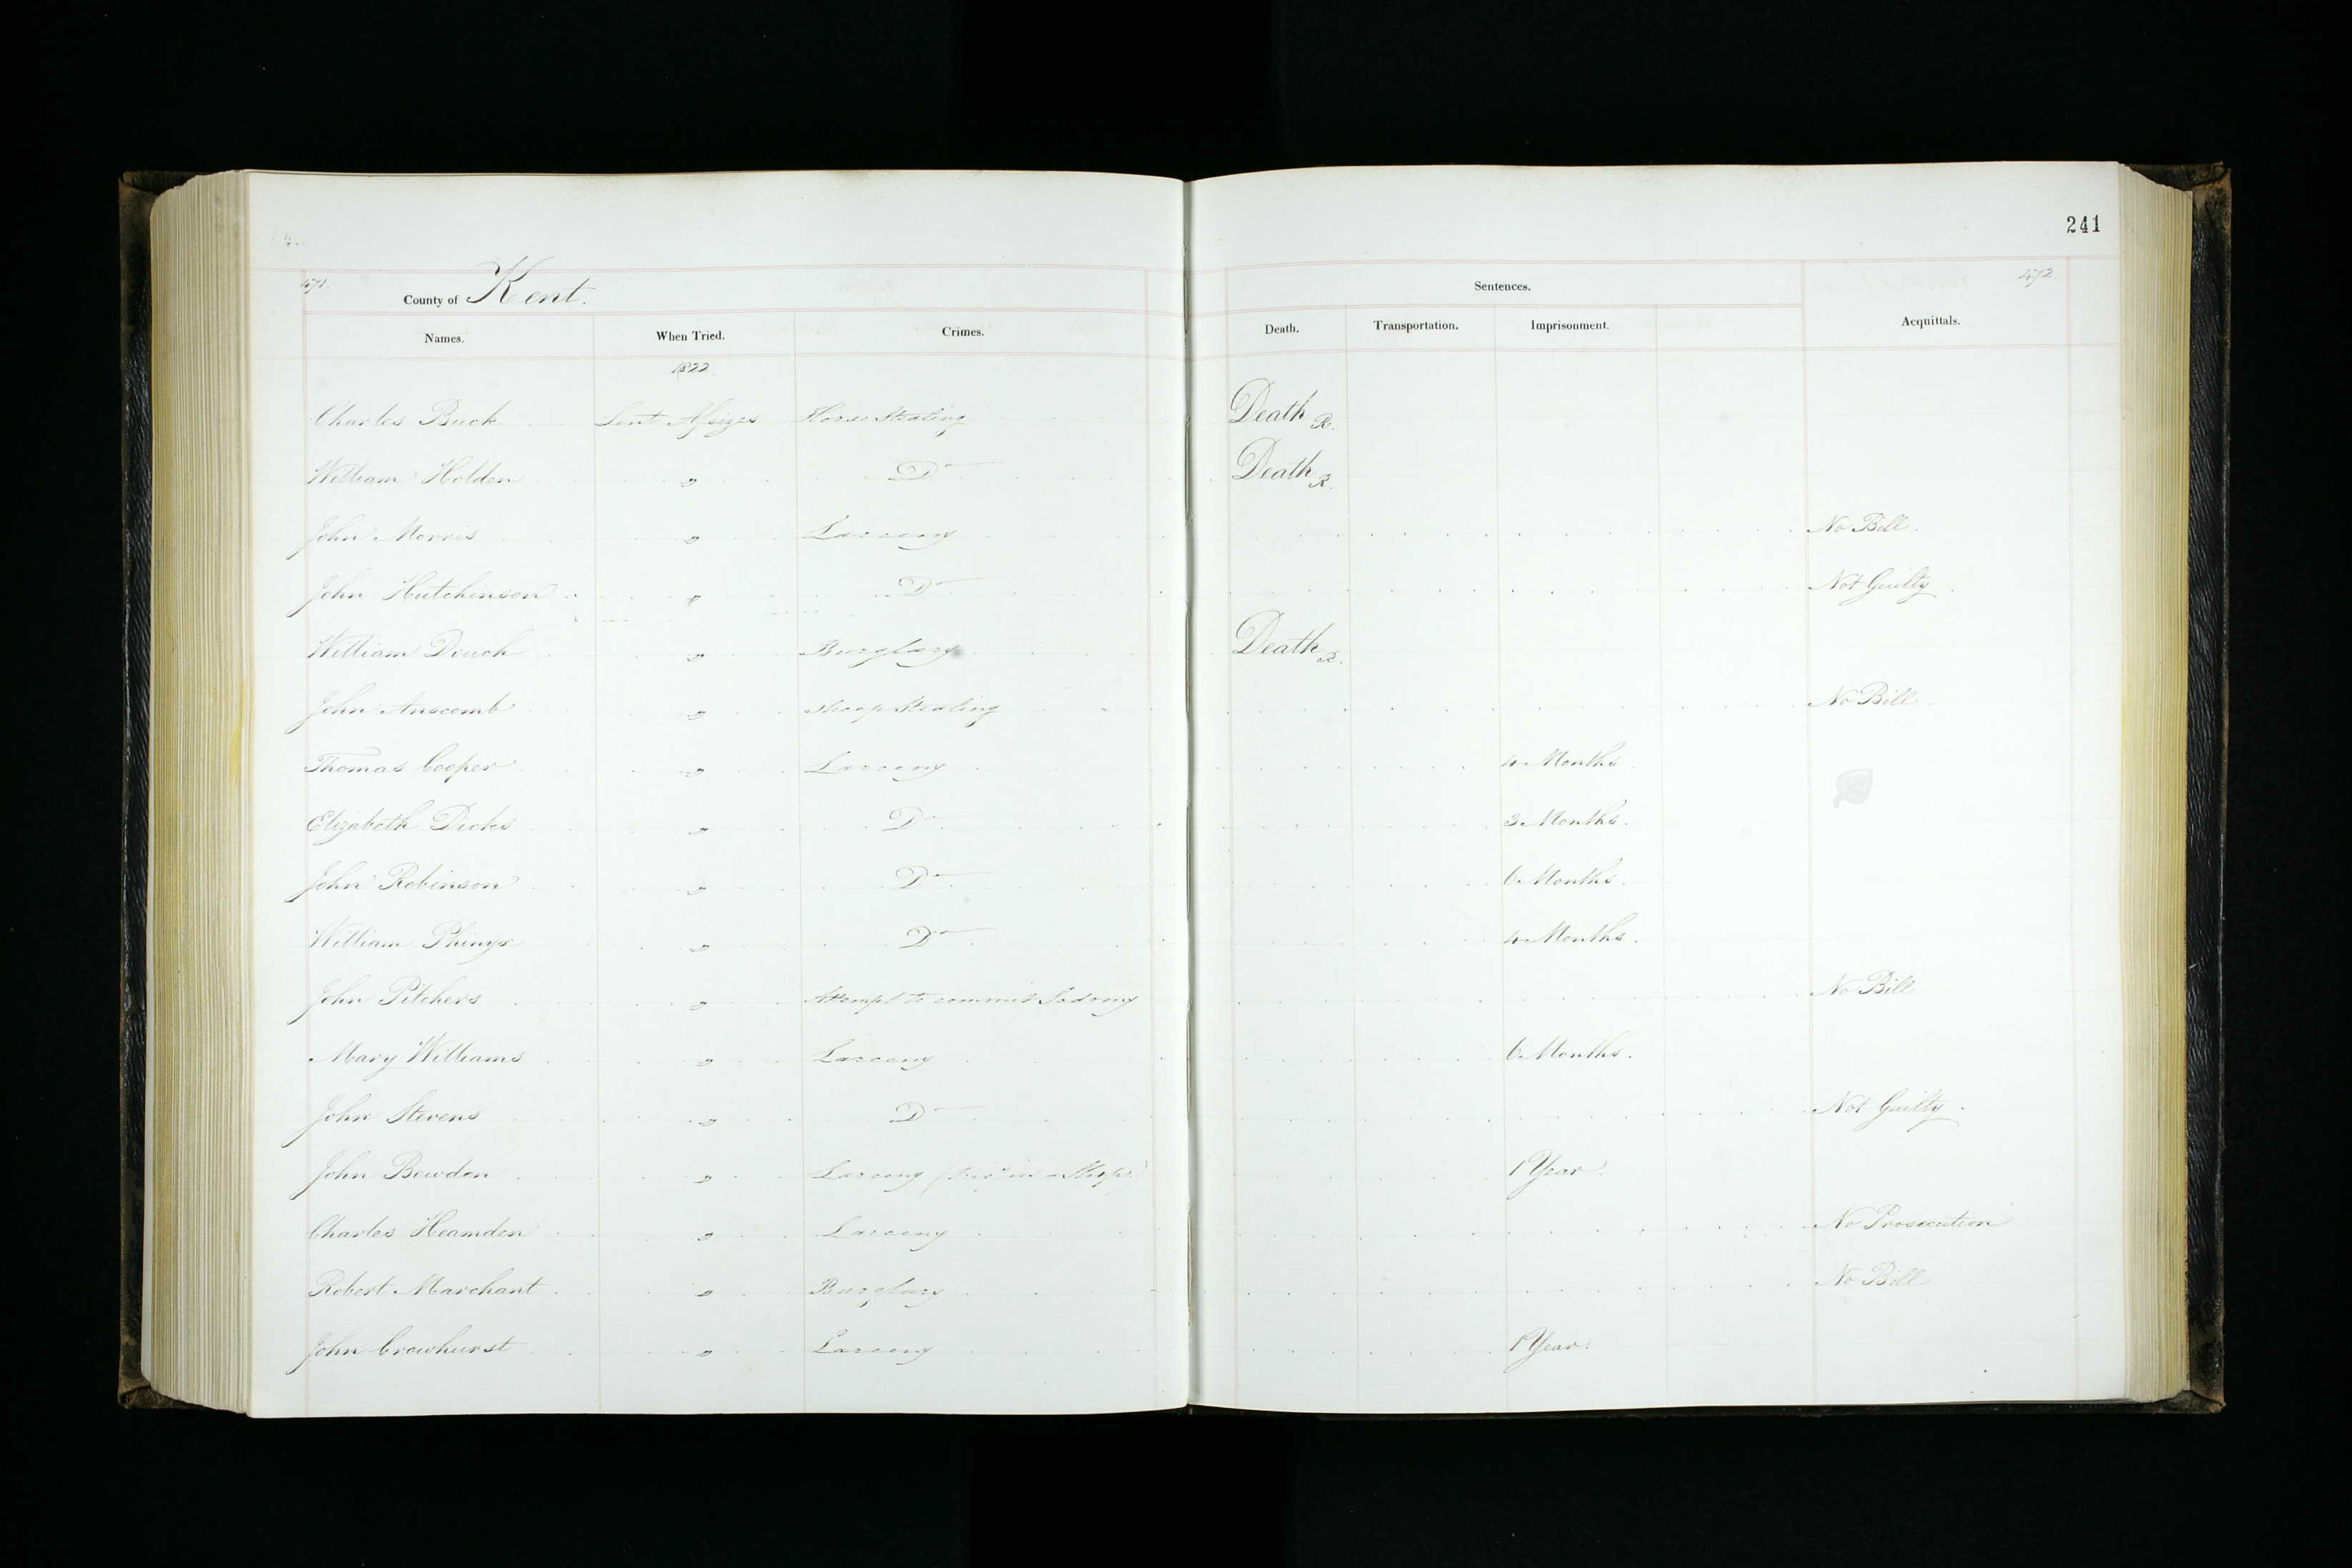 241
471. County of Kent. Sentences. 472
Names. When Tried. Crimes. Death. Transportation. Imprisonment. Acquittals.
1822
Charles Buck Lent Assizes Horse Stealing Death R.
William Holden " Do Death R.
John Morris " Larceny No Bill.
John Hutchinson " Do Not Guilty.
William Douch " Burglary Death R.
John Anscomb " Sheep Stealing No Bill.
Thomas Cooper " Larceny 4 Months
Elizabeth Dicks " Do 3 Months.
John Robinson " Do 6 Months.
William Phinyx " Do 4 Months.
John Pitchers " Attempt to commit Sodomy No Bill
Mary Williams " Larceny 6 Months.
John Stevens " Do Not Guilty.
John Bowden " Larceny ( in a Shop.) 1 Year.
Charles Heamden " Larceny No Prosecution
Robert Marchant " Burglary No Bill
John Crowhurst " Larceny 1 Year.